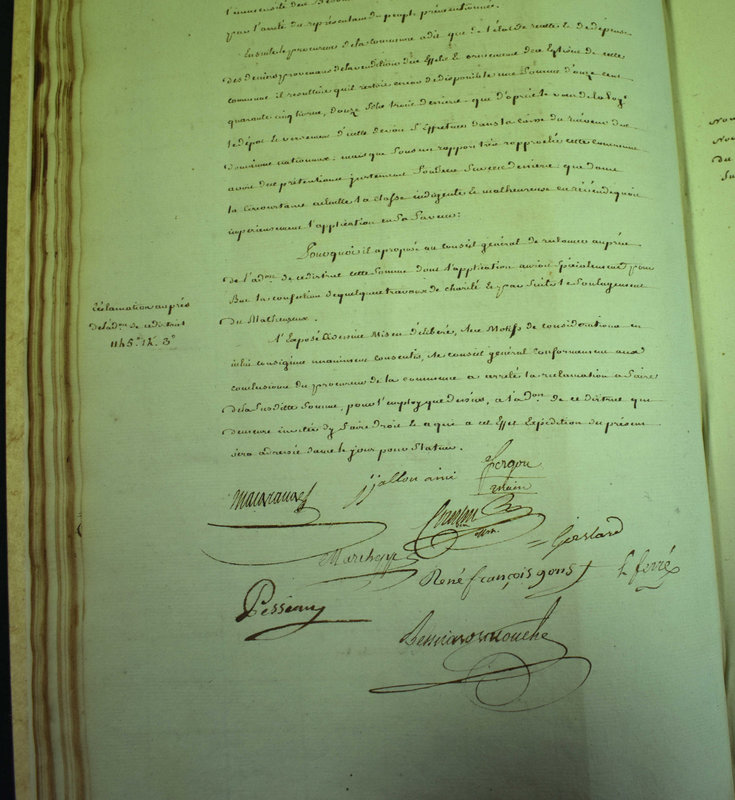 par l'arrêté du représentant du peuple présentionné.
Ensuite le procureur de la commune a dit que de l'état de recette & de dépense
des deniers provenans de la vendition des Effets & ornemens des Eglises de cette
commune il resulteroit qu'il restoit encore de disponible une somme d'onze cent
quarante cinq livres, douze sols trois deniers que d'après le vœu de la Loy
le dépôt & versement d'icelle devoit s'effectuer dans la caisse du receveur des
Domaines nationaux; mais que sous un rapport très rapproché cette commune
avoit des prétentions justement fondées sur ces deniers que dans
la circonstance actuelle la classe indigente & malheureuse en
impérieusement l'application en sa faveur:
Pourquoi il a proposé au conseil général de reclamer auprès
de l'adon. de ce district cette somme dont l'application auroit spécialement pour
But la confection de quelques travaux de charité & par suite le soulagement
du Malheureux.
Réclamation auprès
de l'adon. de ce district
1145# 12s. 3d
L'Exposé Cidessus Mis en délibéré, & les Motifs de considerations en
icelui consignés unaniment consentis, le conseil général conformement aux
conclusions du procureur de la commune a arrêté la réclamation à faire
de la susditte somme, pour l'employ que dessus, à l'adon. de ce district qui
demeure invitée d'y faire droit & a qui a cet Effet Expédition du présent
sera adressée dans le jour pour statuer.
jjallon ainé
Fergon
maire
Marchegay
Girslard
René françois gons
L ferré
Pesseau